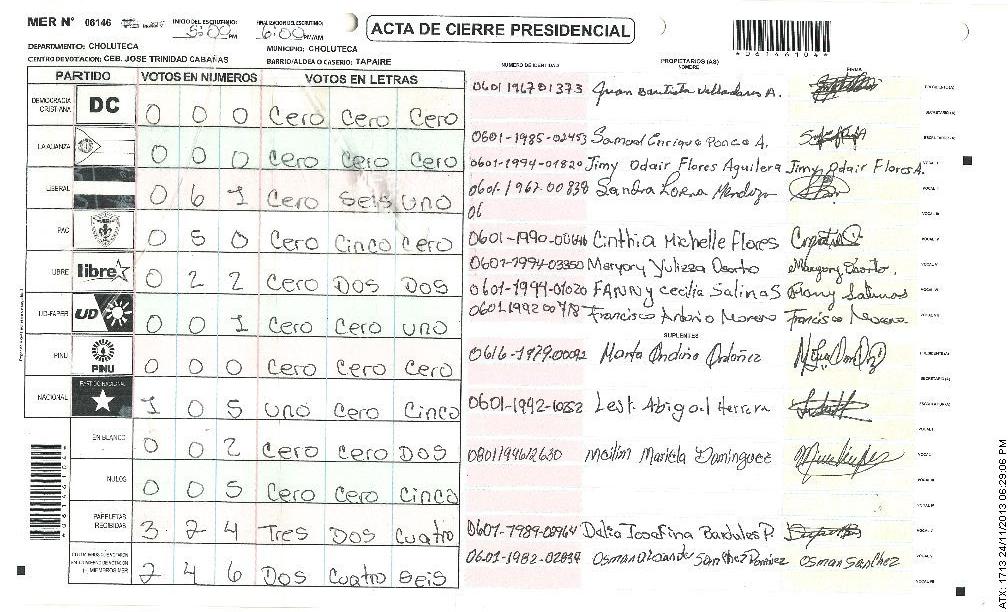 MER N° 06146 INICIO DEL ESCRUTINIO: 5:00 PM FINALIZACION DEL ESCRUTINIO: 6:00 PM/AM ACTA DE CIERRE PRESIDENCIAL
*06146104*
DEPARTAMENTO: CHOLUTECA MUNICIPIO: CHOLUTECA
CENTRO DE VOTACION: CEB. JOSE TRINIDAD CABAÑAS BARRIO/ALDEA O CASERIO: TAPAIRE
PARTIDO VOTOS EN NUMEROS VOTOS EN LETRAS
DEMOCRACIA CRISTIANA DC 0 0 0 Cero Cero Cero
LA ALIANZA 0 0 0 Cero Cero Cero
LIBERAL 0 6 1 Cero Seis Uno
PAC 0 5 0 Cero Cinco Cero
LIBRE libre 0 2 2 Cero Dos Dos
UD-FAPER UD 0 0 1 Cero Cero Uno
PINU PINU 0 0 0 Cero Cero Cero
NACIONAL PARTIDO NACIONAL 1 0 5 Uno Cero Cinco
EN BLANCO 0 0 2 Cero Cero Dos
NULOS 0 0 5 Cero Cero Cinco
PAPELETAS RECIBIDAS 3 2 4 Tres Dos Cuatro
2 4 6 Dos Cuatro Seis
NUMERO DE IDENTIDAD PROPIETARIOS (AS) NOMBRE FIRMA
0601196701373 Juan Bautista Valladares A.
0601-1985-02453 Samuel Enrique Ponce A.
0601-1994-01820 Jimy Odair Flores Aguilera Jimy Odair Flores A.
0601-1967-00838 Sandra Lorena Mendoza
06
0601-1990-00646 Cinthia Michelle Flores
0601-1994-03350 Maryory Yulizza Osorto Maryory Osorto.
0601-1994-01020 FANNy Cecilia Salinas Fanny Salinas
0601199200718 Francisco Antonio Moreno Francisco Moreno
SUPLENTES
0616-1979-00092 Marta Ondina Ordoñez
0601-1992-10252 Abigail Herrera
Mariela Dominguez
0601-1989-00964 Delia Josefina P.
0601-1982-02834 Osman Sanchez Osman Sanchez
ATX: 1713 24/11/2013 06:29:06 PM